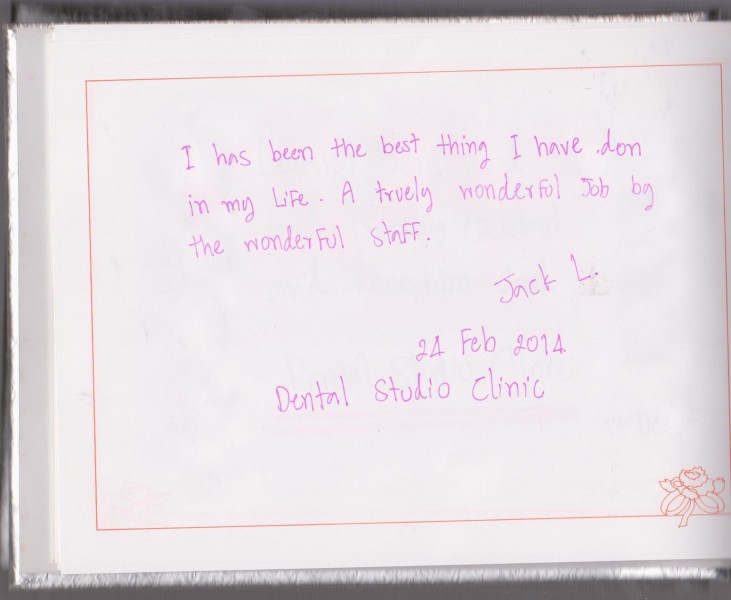 I has been the best thing I have don
in my Life. A truely wonderful Job by
the wonderful staff.
Jack L.
24 Feb 2014
Dental Studio Clinic